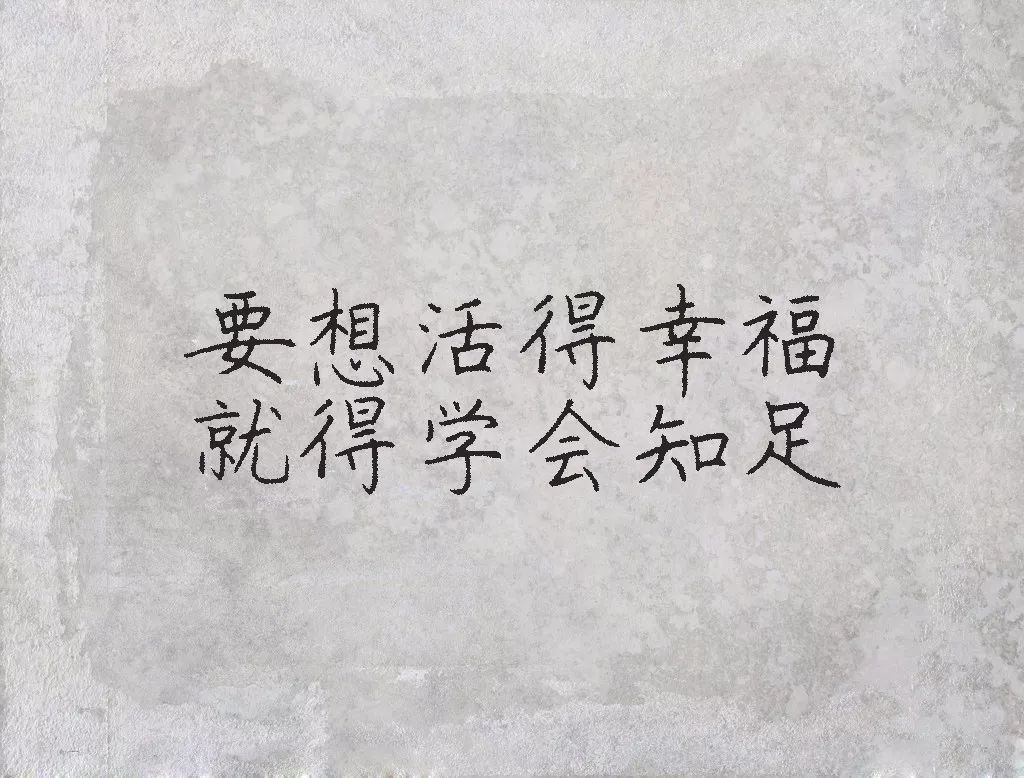 要想活得幸福
就得学会知足